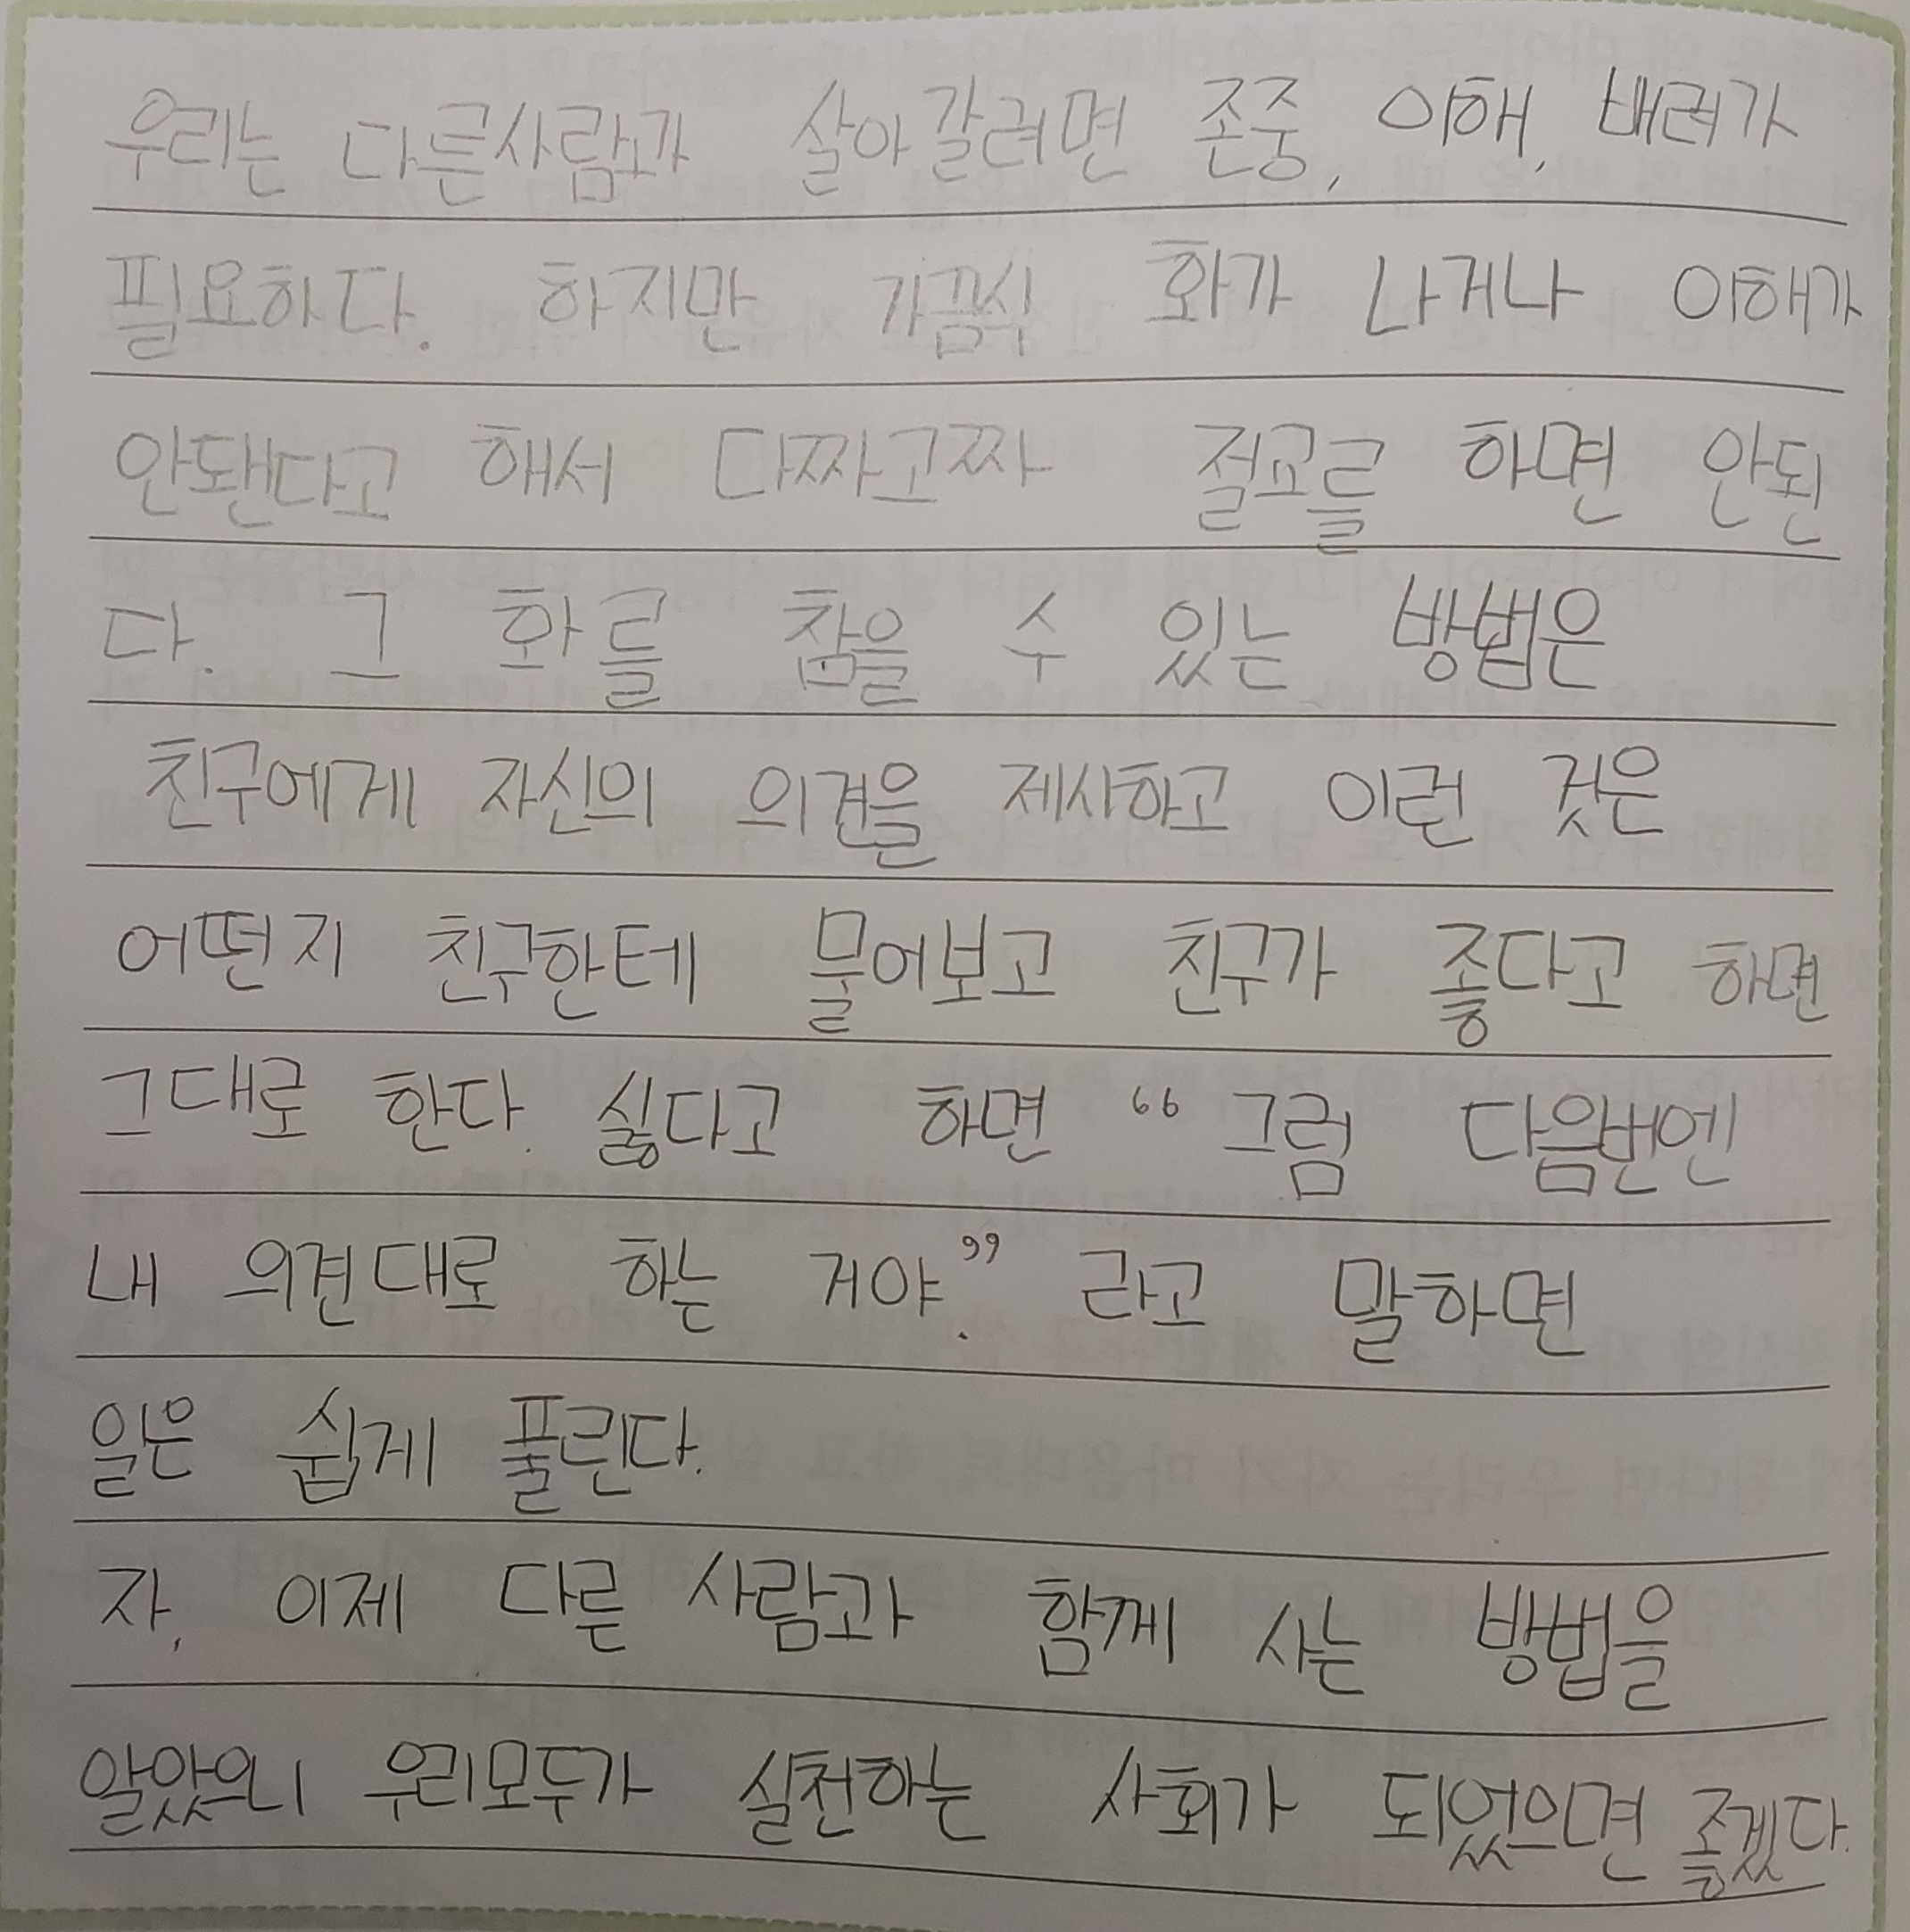 우리는 다른사람과 살아갈려면 존중, 이해, 배려가
필요하다. 하지만 가끔식 화가 나거나 이해가
안됀다고 해서 다짜고짜 절교를 하면 안된
다. 그 화를 참을 수 있는 방법은
친구에게 자신의 의견을 제시하고 이런 것은
어떤지 친구한테 물어보고 친구가 좋다고 하면
그대로 한다. 싫다고 하면 “그럼 다음번엔
내 의견대로 하는 거야.” 라고 말하면
일은 쉽게 풀린다.
자, 이제 다른 사람과 함께 사는 방법을
알았으니 우리모두가 실천하는 사회가 되었으면 좋겠다.